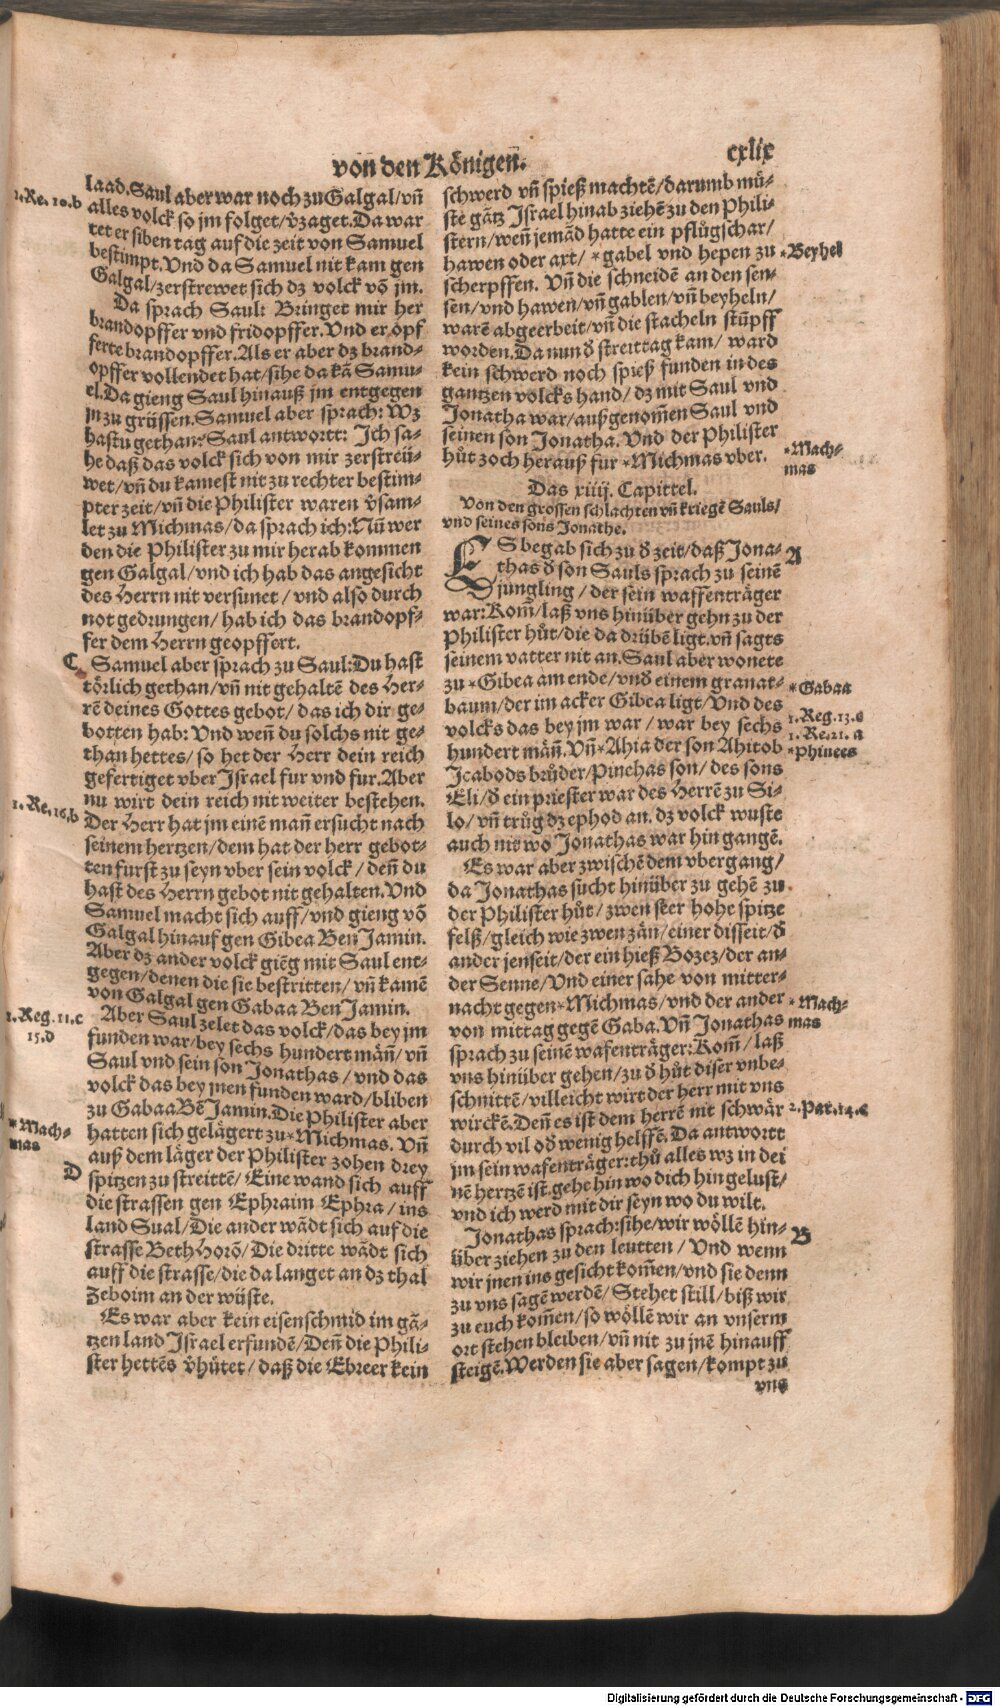 von̄ den Königen̄.
cxlix
laad. Saul aber war noch zu Galgal/vn̄
1.Re.10.b
alles volck so jm folget/v̄zaget. Da war
tet er siben tag auf die zeit von Samuel
bestimpt. Vnd da Samuel nit kam gen
Galgal/zerstrewet sich dz volck vō jm.
Da sprach Saul: Bringet mir her
brandopffer vnd fridopffer. Vnd er opf
ferte brandopffer. Als er aber dz brand-
opffer vollendet hat/sihe da kā Samu-
el. Da gieng Saul hinauß jm entgegen
jn zu grüssen. Samuel aber sprach: Wz
hastu gethan? Saul antwortt: Ich sa-
he daß das volck sich von mir zerstreü-
wet/vn̄ du kamest nit zu rechter bestim-
pter zeit/vn̄ die Philister waren v̄sam-
let zu Michmas/da sprach ich: Nū wer
den die Philister zu mir herab kommen
gen Galgal/vnd ich hab das angesicht
des Herrn nit versunet/vnd also durch
not gedrungen/hab ich das brandopf-
fer dem Herrn geopffert.
C Samuel aber sprach zu Saul: Du hast
törlich gethan/vn̄ nit gehaltē des Her-
rē deines Gottes gebot/das ich dir ge-
botten hab: Vnd wen̄ du solchs nit ge-
than hettes/so het der Herr dein reich
gefertiget vber Israel fur vnd fur. Aber
nu wirt dein reich nit weiter bestehen.
1.Re.16.b
Der Herr hat jm einē man̄ ersucht nach
seinem hertzen/dem hat der herr gebot-
ten furst zu seyn vber sein volck/den̄ du
hast des Herrn gebot nit gehalten. Vnd
Samuel macht sich auff/vnd gieng vō
Galgal hinauf gen Gibea Ben Jamin.
Aber dz ander volck giēg mit Saul ent-
gegen/denen die sie bestritten/vn̄ kamē
von Galgal gen Gabaa Ben Jamin.
1.Reg.11.c
15.d
Aber Saul zelet das volck/das bey jm
funden war/bey sechs hundert mān̄/vn̄
Saul vnd sein son Jonathas/vnd das
volck das bey jnen funden ward/bliben
zu Gabaa Bē Jamin. Die Philister aber
*Mach-
mas
hatten sich gelägert zu *Michmas. Vn̄
auß dem läger der Philister zohen drey
D spitzen zu streittē/Eine wand sich auff
die strassen gen Ephraim Ephra/ins
land Sual/Die ander wādt sich auf die
strasse Beth Horō/Die dritte wādt sich
auff die strasse/die da langet an dz thal
Zeboim an der wüste.
Es war aber kein eisenschmid im gā-
tzen land Israel erfundē/Den̄ die Phili-
ster hettēs v̄hütet/daß die Ebreer kein
schwerd vn̄ spieß machtē/darumb mü-
ste gātz Israel hinab ziehē zu den Phili-
stern/wen̄ jemād hatte ein pflůgschar/
hawen oder axt/*gabel vnd hepen zu
*Beyhel
scherpffen. Vn̄ die schneidē an den sen-
sen/vnd hawen/vn̄ gablen/vn̄ beyheln/
warē abgeerbeit/vn̄ die stacheln stūpff
worden. Da nun d̄ streittag kam/ward
kein schwerd noch spieß funden in des
gantzen volcks hand/dz mit Saul vnd
Jonatha war/außgenom̄en Saul vnd
seinen son Jonatha. Vnd der Philister
hůt zoch herauß fur *Michmas vber.
*Mach-
mas
Das xiiij. Capittel.
Von den grossen schlachten vn̄ kriegē Sauls/
vnd seines sons Jonathe.
ES begab sich zu d̄ zeit/daß Jona-
A
thas d̄ son Sauls sprach zu seinē
jungling/der sein waffenträger
war: Kom̄/laß vns hinüber gehn zu der
Philister hůt/die da drübē ligt. vn̄ sagts
seinem vatter nit an. Saul aber wonete
zu *Gibea am ende/vnd̄ einem granat-
*Gabaa
baum/der im acker Gibea ligt/Vnd des
volcks das bey jm war/war bey sechs
1.Reg.13.e
1.Re.21.a
hundert mān̄. Vn̄ *Ahia der son Ahitob
*Phinees
Icabods brůder/Pinehas son/des sons
Eli/d̄ ein priester war des Herrē zu Si-
lo/vn̄ trůg dz ephod an. dz volck wuste
auch nit wo Jonathas war hin gangē.
Es war aber zwischē dem vbergang/
da Jonathas sucht hinüber zu gehē zu
der Philister hůt/zwen ster hohe spitze
felß/gleich wie zwen zän/einer disseit/d̄
ander jenseit/der ein hieß Bozez/der an-
der Senne/Vnd einer sahe von mitter-
nacht gegen *Michmas/vnd der ander
*Mach-
mas
von mittag gegē Gaba. Vn̄ Jonathas
sprach zu seinē wafenträger: Kom̄/laß
vns hinüber gehen/zu d̄ hůt diser vnbe-
schnittē/villeicht wirt der herr mit vns
wirckē. Den̄ es ist dem herrē nit schwär
2.Par.14.c
durch vil od̄ wenig helffē. Da antwortt
jm sein wafenträger: thů alles wz in dei
nē hertzē ist. gehe hin wo dich hin gelust/
vnd ich werd mit dir seyn wo du wilt.
Jonathas sprach: sihe/wir wöllē hin-
B
über ziehen zu den leutten/Vnd wenn
wir jnen ins gesicht kom̄en/vnd sie denn
zu vns sagē werdē/Stehet still/biß wir
zu euch kom̄en/so wöllē wir an vnserm
ort stehen bleiben/vn̄ nit zu jnē hinauff
steigē. Werden sie aber sagen/kompt zu
vns
Digitalisierung gefördert durch die Deutsche Forschungsgemeinschaft - DFG